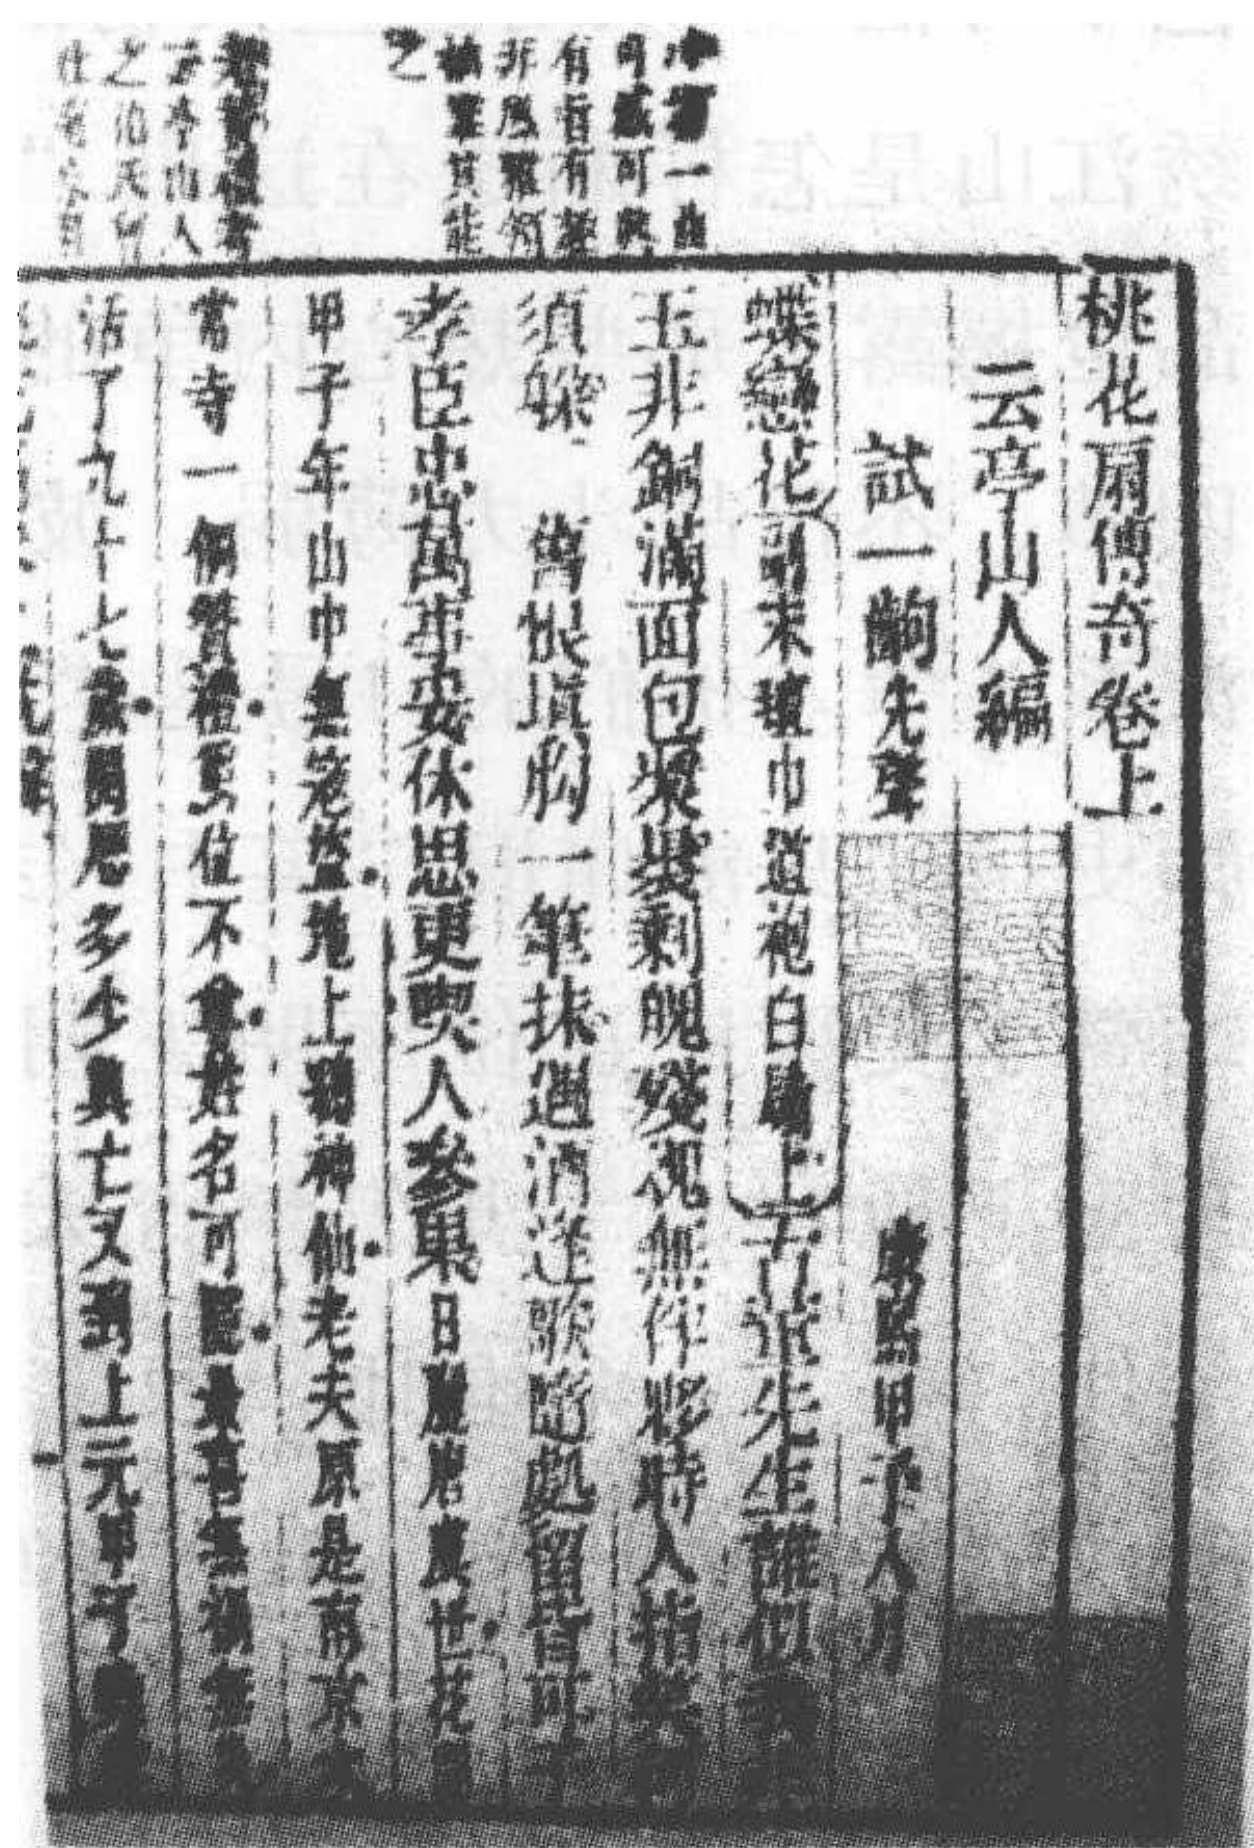 桃花扇傳奇卷上
云亭山人編
試一齣 先聲 康熙甲子八月
蝶戀花 副末氊巾道袍白鬚上 古董先生誰似我
非玉非銅滿面包漿裹剩魄殘魂無伴夥時人指笑
須躲 舊恨塡胸一筆抹過酒逢歌隨處留皆可
孝臣忠萬事妥休思更喫人參果 日麗唐虞世花
甲子年山中無寇盜地上有神仙老夫原是南京
常寺一個贊禮爵位不尊姓名可隱最喜無禍無
活了九十七歲閱歷多少興亡又到上元甲子
冲場一曲
可感可興
有旨有趣
非風雅領
袖誰其能
之
老贊禮者
云亭山人
之伯氏